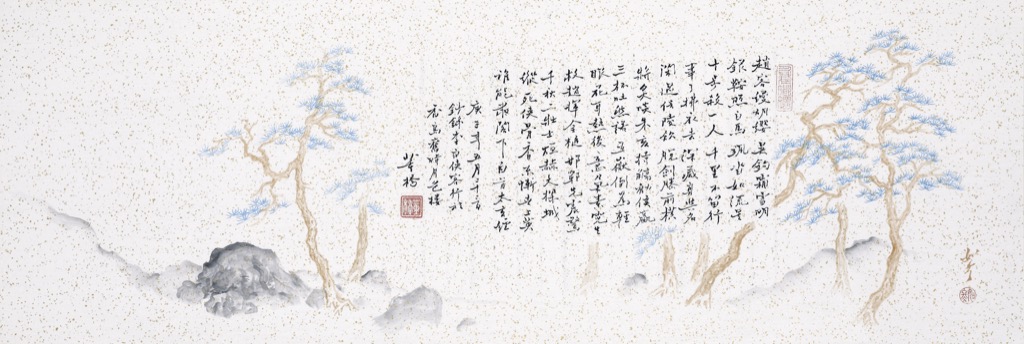 趙客縵胡纓吳鉤霜雪明
銀鞍照白馬颯沓如流星
十步殺一人千里不留行
事了拂衣去深藏身與名
閒過信陵飲脫劍膝前橫
將炙啖朱亥持觴勸侯嬴
三杯吐然諾五嶽倒為輕
眼花耳熱後意氣素霓生
救趙揮金槌邯鄲先震驚
千秋二壯士烜赫大梁城
縱死俠骨香不慚世上英
誰能書閣下白首太玄經
庚子年五月
李白俠客行於
香島舊時月色樓
董橋